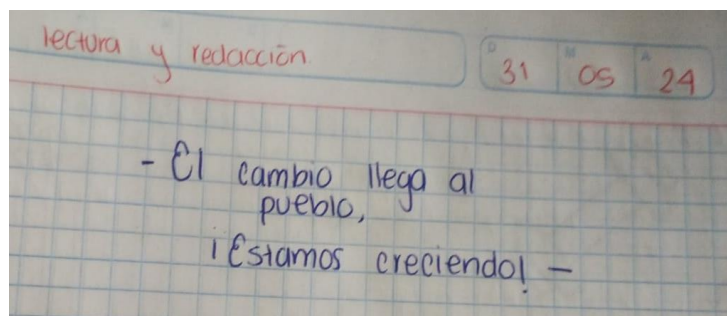 lectura y redacción.
D 31 M 05 A 24
- El cambio llega al
pueblo,
¡Estamos creciendo! -